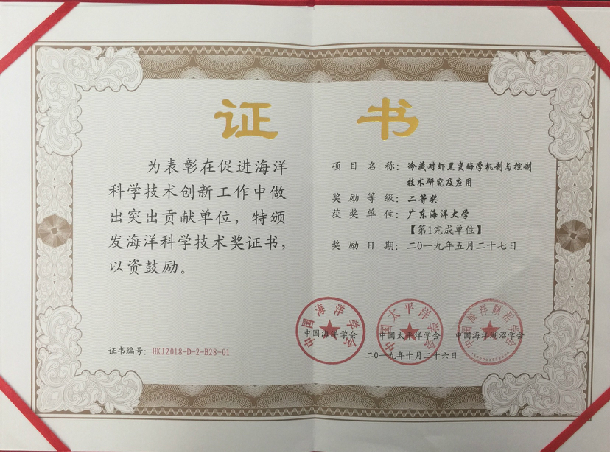 证 书
为表彰在促进海洋
科学技术创新工作中做
出突出贡献单位，特颁
发海洋科学技术奖证书，
以资鼓励。
证书编号：
项目名称：冷藏对虾
机制与控制
技术研究及应用
奖励等级：二等奖
获奖单位：广东海洋大学
【第1完成单位】
奖励日期：二〇一九年五月二十七日
中国海洋学会
中国太平洋学会
中国海洋湖沼学会
二〇一九年十月二十六日
中国海洋学会
中国太平洋学会